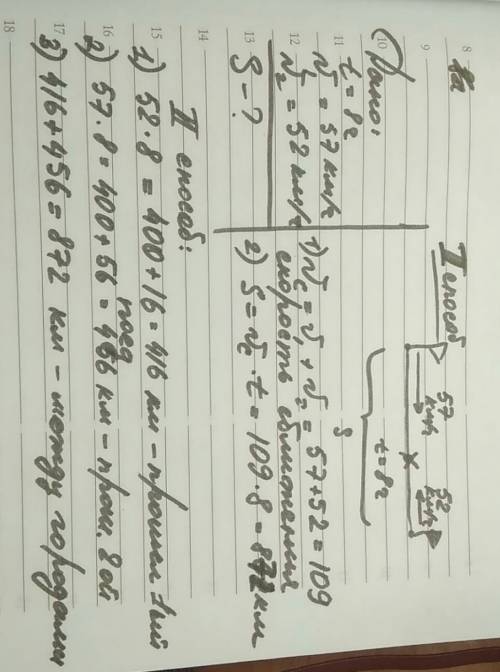 8
9
10
11
12
13
14
15
16
17
18
I способ
57 км/ч
52 км/ч
t = 8ч
S
Дано:
t = 8ч
v₁ = 57 км/ч
v₂ = 52 км/ч
S - ?
1) vс = v₁ + v₂ = 57 + 52 = 109
скорость сближения
2) S = vс · t = 109 · 8 = 872 км
II способ:
1) 52 · 8 = 400 + 16 = 416 км - прошел 1ый
поезд
2) 57 · 8 = 400 + 56 = 456 км - прош. 2ой
3) 416 + 456 = 872 км - между городами